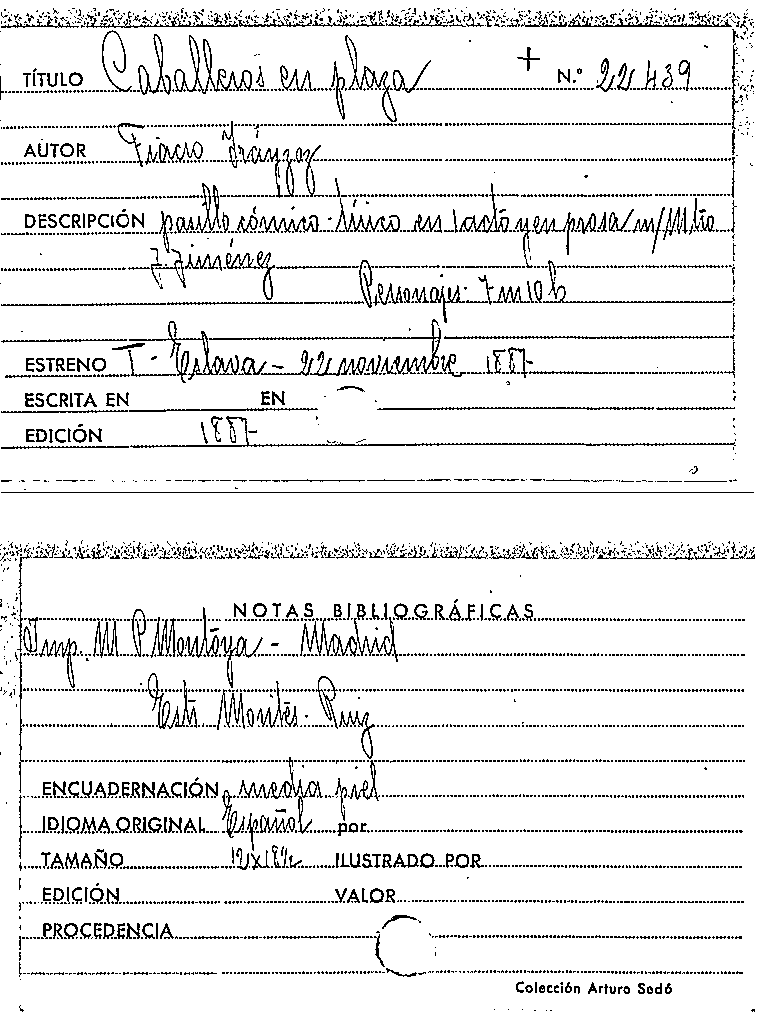 TÍTULO Caballeros en plaza + N.º 22439
AUTOR Fiacro Yráyzoz
DESCRIPCIÓN pasillo cómico-lírico en 1 acto y en prosa m/ Mtro
J. Jiménez
Personajes: 7 m 10 h
ESTRENO T - Eslava - 22 noviembre 1887
ESCRITA EN EN
EDICIÓN 1887
NOTAS BIBLIOGRÁFICAS
Imp. M P Montoya - Madrid
Montés - Ruiz
ENCUADERNACIÓN media piel
IDIOMA ORIGINAL Español por
TAMAÑO 12x18 ½ ILUSTRADO POR
EDICIÓN VALOR
PROCEDENCIA
Colección Arturo Sedó